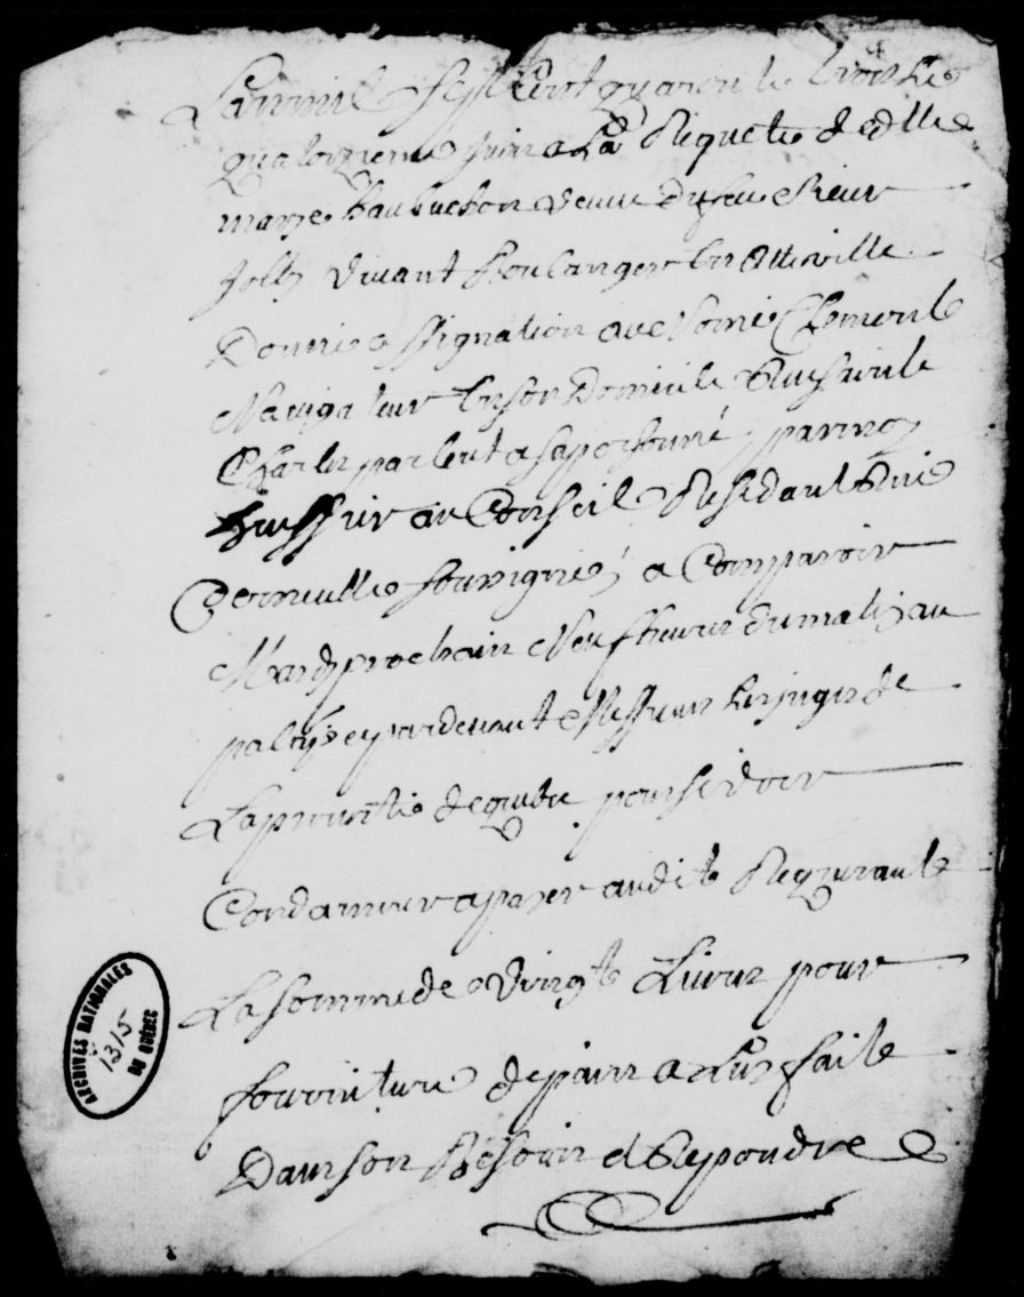 L'an mil sept Cent quarente trois Le
quatorzieme Juin a La Requete de dlle
marie haubuchon veuve du feu Sieur
Jolly vivant boulanger En cette ville
Donné assignation au nomé Clement
Navigateur En son Domicile Rue saint
Charles parlent a sa personne, par moy
huissier au Conseil Residant Rue
soussigné, a Comparoir
Mardy prochain Neuf heures du matin au
palais et pardevant Messieurs Les juges de
La prevosté de quebec pour se voir
Condamner a payer audite Requerante
La somme de vingt Livres pour
fourniture de pain a Luy faite
Dans son Besoin et Repondre
ARCHIVES NATIONALES
1315
DU QUÉBEC